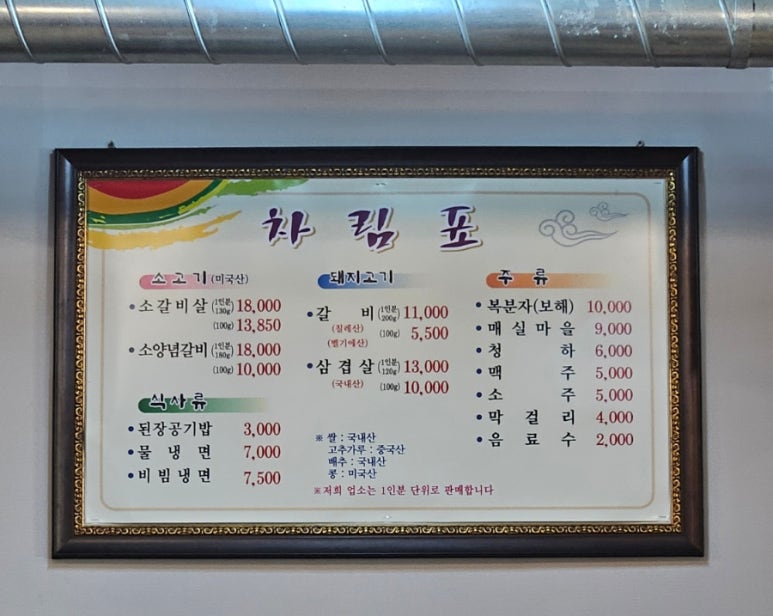 차림표
소고기(미국산)
• 소갈비살 (1인분 130g) 18,000
(100g) 13,850
• 소양념갈비 (1인분 180g) 18,000
(100g) 10,000
식사류
• 된장공기밥 3,000
• 물냉면 7,000
• 비빔냉면 7,500
돼지고기
• 갈비 (1인분 200g) 11,000
(칠레산) (100g) 5,500
(벨기에산)
• 삼겹살 (1인분 120g) 13,000
(국내산) (100g) 10,000
※ 쌀 : 국내산
고추가루 : 중국산
배추 : 국내산
콩 : 미국산
※저희 업소는 1인분 단위로 판매합니다
주류
• 복분자(보해) 10,000
• 매실마을 9,000
• 청하 6,000
• 맥주 5,000
• 소주 5,000
• 막걸리 4,000
• 음료수 2,000